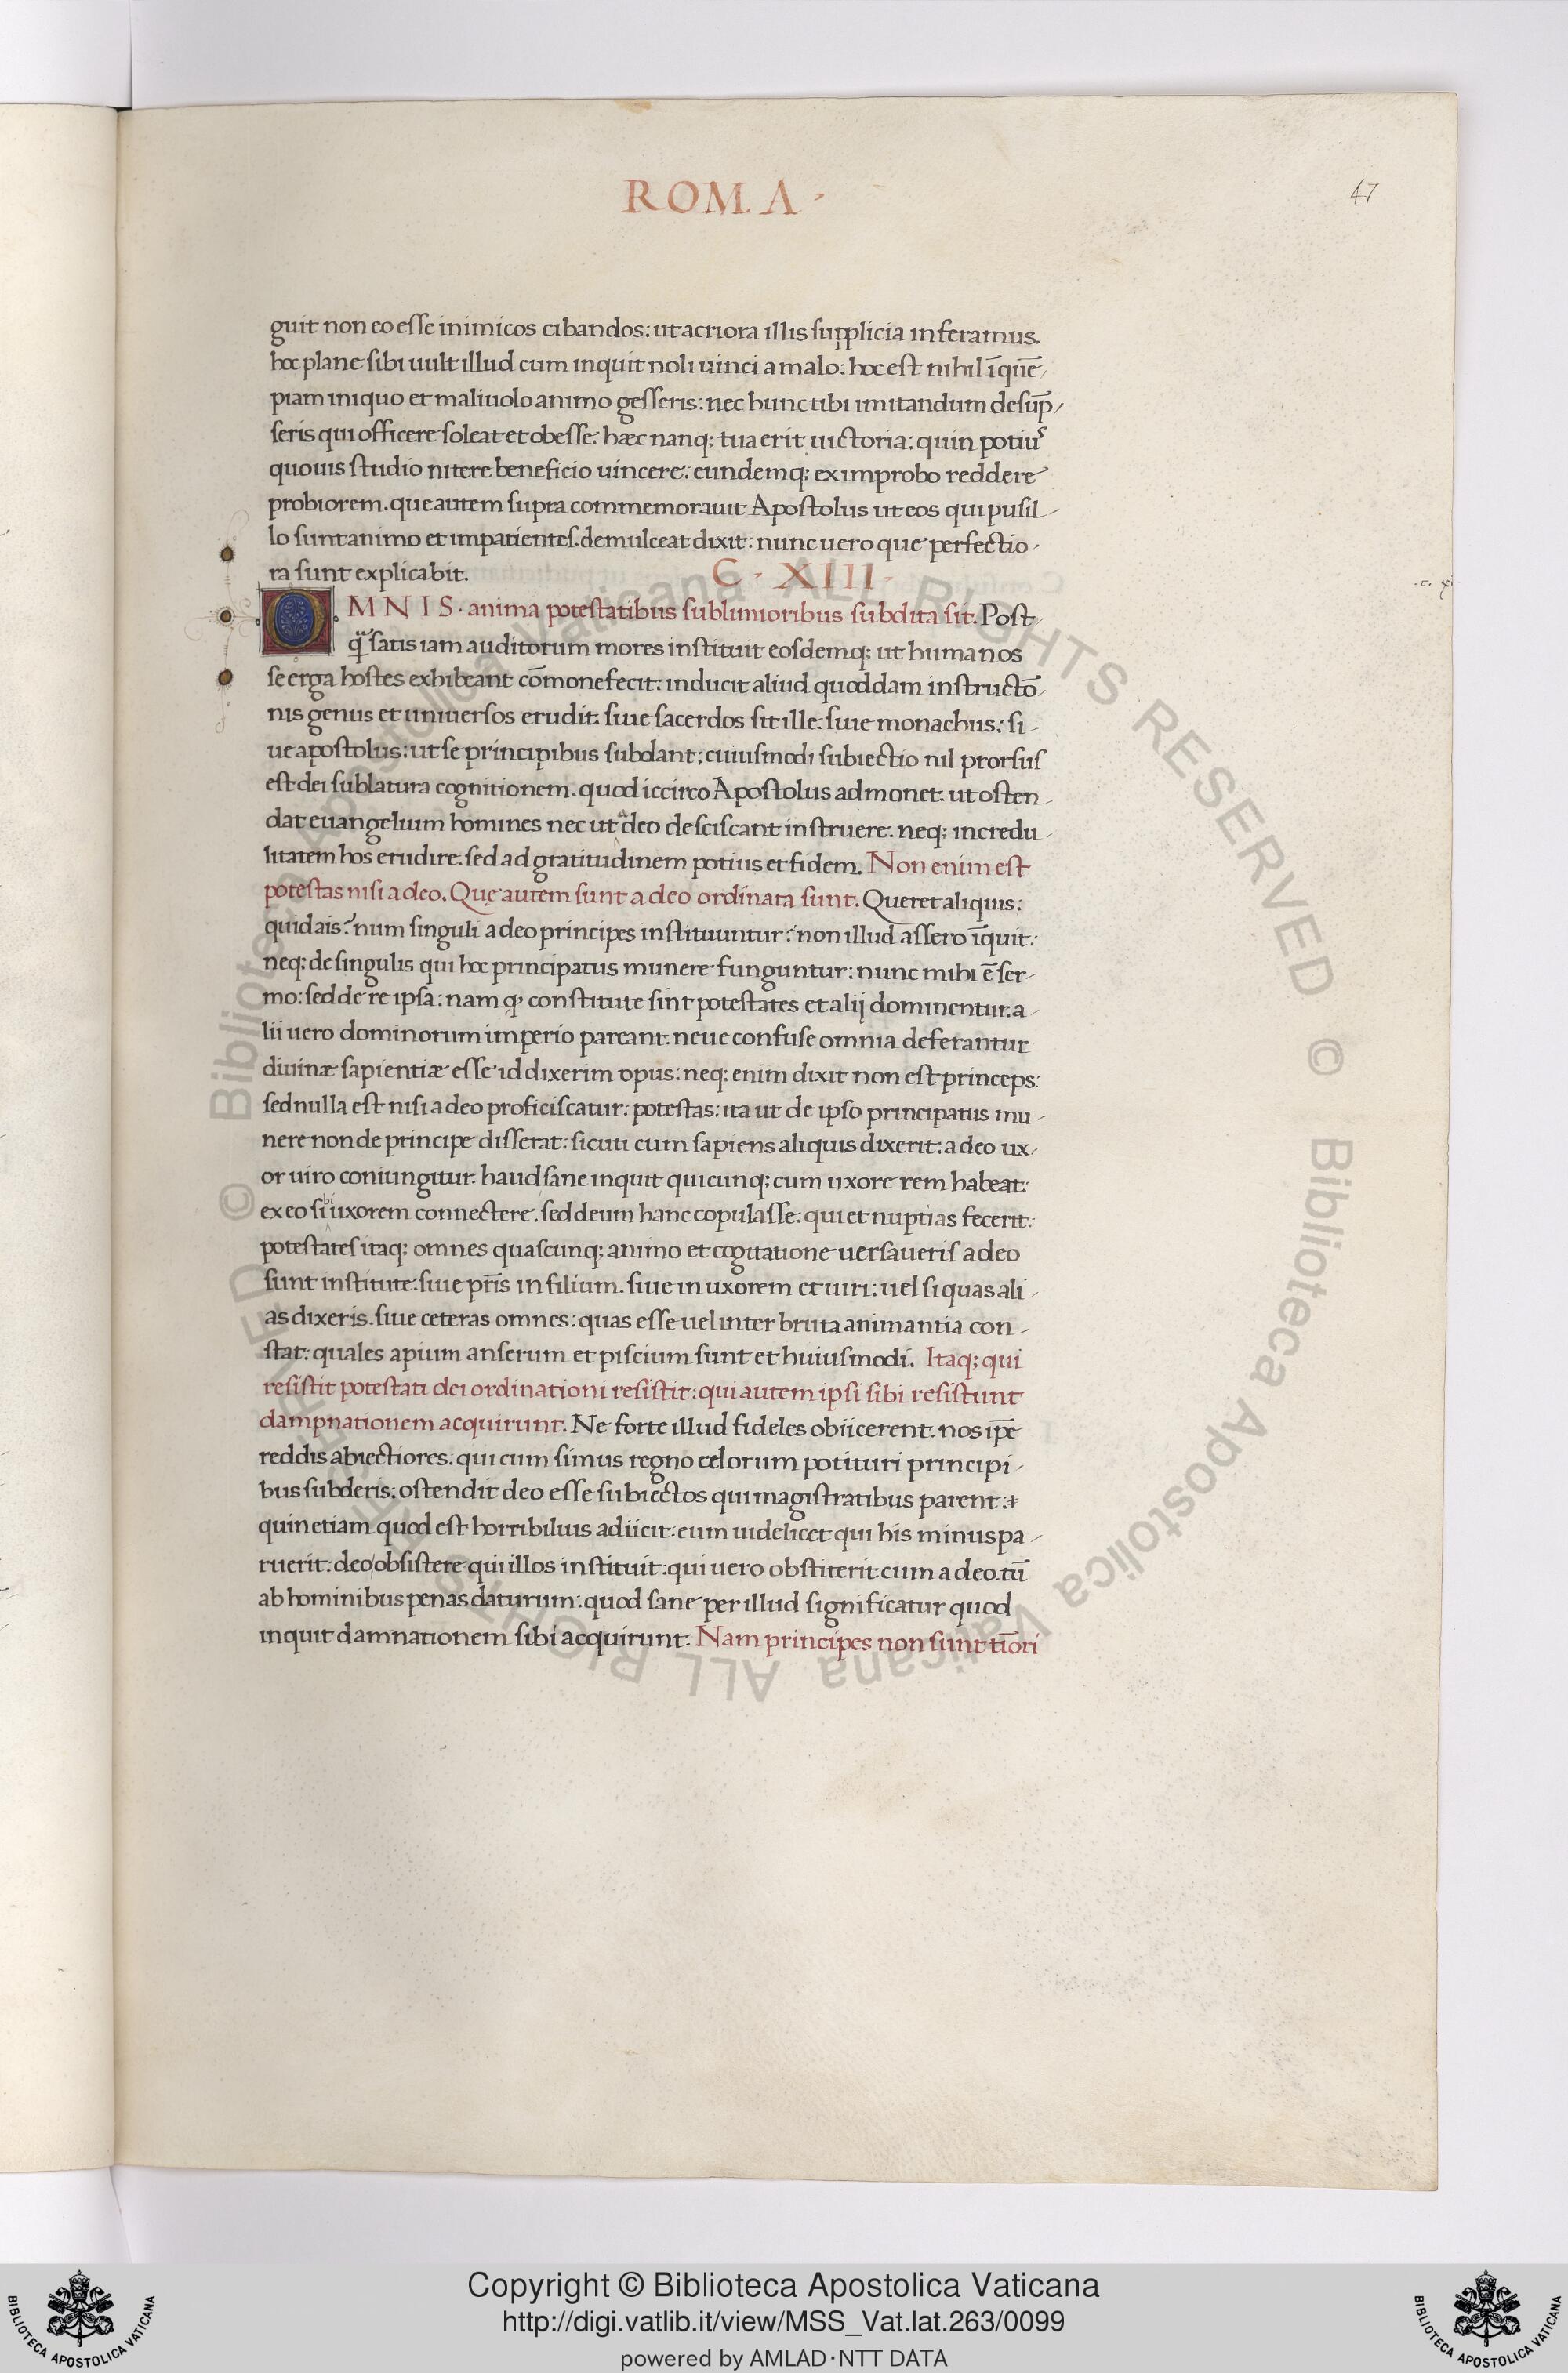 ROMA
47
guit non eo esse inimicos cibandos: ut acriora illis supplicia inferamus.
hoc plane sibi uult illud cum inquit noli uinci a malo: hoc est nihil ī quē
piam iniquo et maliuolo animo gesseris: nec hunc tibi imitandum desūp
seris qui officere soleat et obesse: hæc nanq; tua erit uictoria: quin potius
quouis studio nitere beneficio uincere: eundemq; ex improbo reddere
probiorem. que autem supra commemorauit Apostolus ut eos qui pusil
lo sunt animo et impatientes demulceat dixit: nunc uero que perfectio
ra sunt explicabit.
C · XIII ·
OMNIS · anima potestatibus sublimioribus subdita sit. Post
q̃ satis iam auditorum mores instituit eosdemq; ut humanos
se erga hostes exhibeant cōmonefecit: inducit aliud quoddam instructō
nis genus et uniuersos erudit. siue sacerdos sit ille. siue monachus: si
ue apostolus: ut se principibus subdant; cuiusmodi subiectio nil prorsus
est dei sublatura cognitionem. quod iccirco Apostolus admonet. ut osten
dat euangelium homines nec ut a deo desciscant instruere. neq; incredu
litatem hos erudire. sed ad gratitudinem potius et fidem. Non enim est
potestas nisi a deo. Quę autem sunt a deo ordinata sunt. Queret aliquis:
quid ais? num singuli a deo principes instituuntur? non illud assero īquit:
neq; de singulis qui hoc principatus munere funguntur: nunc mihi ē ser
mo: sed de re ipsa: nam q constitute sint potestates et alij dominentur. a
lii uero dominorum imperio pareant. neue confuse omnia deferantur
diuinæ sapientiæ esse id dixerim opus: neq; enim dixit non est princeps:
sed nulla est nisi a deo proficiscatur: potestas: ita ut de ipso principatus mu
nere non de principe disserat: sicuti cum sapiens aliquis dixerit: a deo ux
or uiro coniungitur. haud sane inquit quicunq; cum uxore rem habeat:
ex eo sibi uxorem connectere. sed deum hanc copulasse: qui et nuptias fecerit:
potestates itaq; omnes quascunq; animo et cogitatione uersaueris a deo
sunt institute: siue pr̄is in filium. siue in uxorem et uiri: uel si quas ali
as dixeris. siue ceteras omnes: quas esse uel inter bruta animantia con
stat: quales apium anserum et piscium sunt et huiusmodi. Itaq; qui
resistit potestati dei ordinationi resistit: qui autem ipsi sibi resistunt
dampnationem acquirunt. Ne forte illud fideles obiicerent. nos ip̄e
reddis abiectiores: qui cum simus regno celorum potituri principi
bus subderis: ostendit deo esse subiectos qui magistratibus parent:
quin etiam quod est horribilius adiicit: eum uidelicet qui his minus pa
ruerit: deo obsistere qui illos instituit: qui uero obstiterit cum a deo. tū
ab hominibus penas daturum: quod sane per illud significatur quod
inquit damnationem sibi acquirunt. Nam principes non sunt tīori
© Biblioteca Apostolica Vaticana ALL RIGHTS RESERVED © Biblioteca Apostolica Vaticana ALL RIGHTS RESERVED
Copyright © Biblioteca Apostolica Vaticana
http://digi.vatlib.it/view/MSS_Vat.lat.263/0099
powered by AMLAD·NTT DATA
BIBLIOTECA APOSTOLICA VATICANA
BIBLIOTECA APOSTOLICA VATICANA